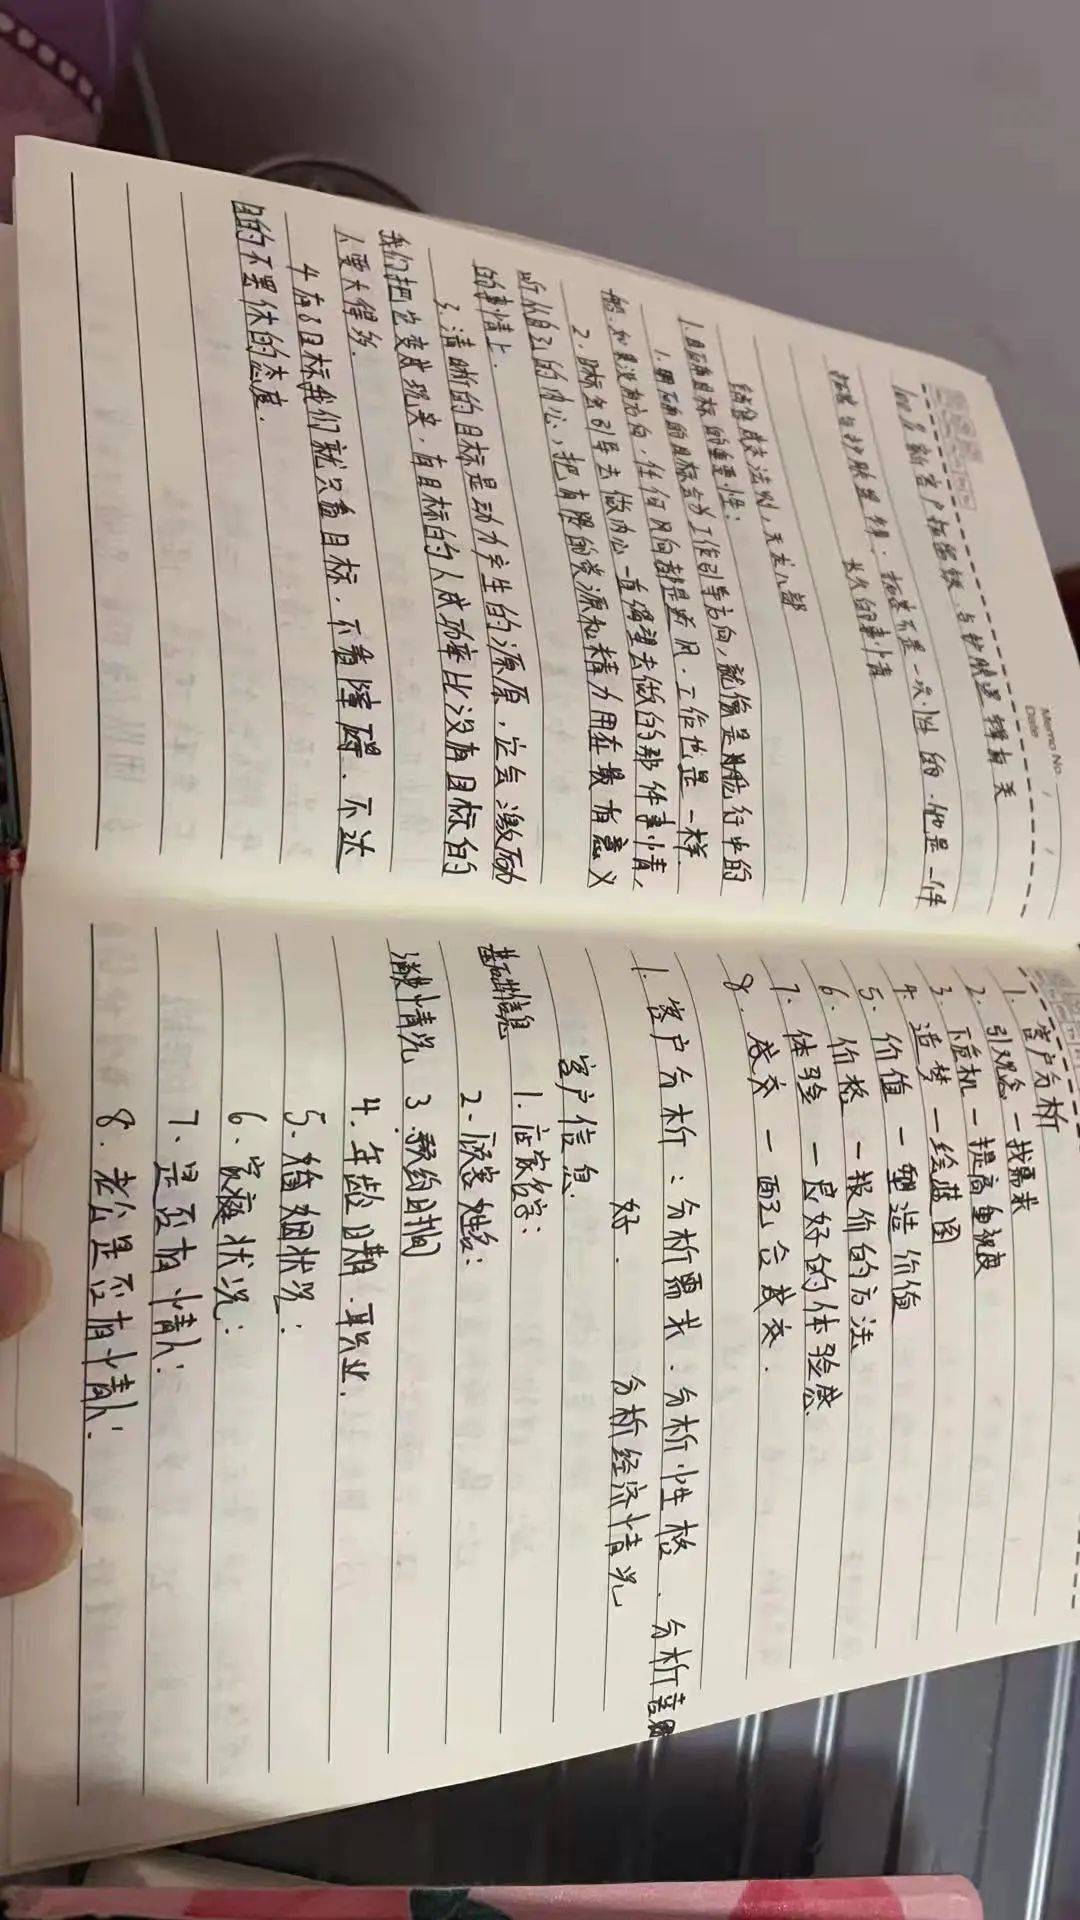 Memo No.
Date / /
100名新客户拓留锁、与护肤选择有关
拓客与护肤选择：拓客不是一次性的.他是一件
长久的事情
结合成交法则，天龙八部
1.明确目标的重要性：
1.明确的目标会为工作引导方向，就像是船航行中的
船.如果没有方向.任何风向都是逆风.工作也是一样.
2.目标会引导去做内心一直渴望去做的那件事情、
听从自己的内心，把有限的资源和精力用在最有意义
的事情上.
3.清晰的目标是动力产生的源原.它会激励
我们把它变成现实.有目标的人成功率比没有目标的
人要大得多.
4.有了目标我们就只看目标.不看障碍.不达
目的不罢休的态度.
1.客户分析
引观念—找需求
2.下危机—提高重视度
3.造梦—绘蓝图
4.
5.价值—塑造价值
6.价格—报价的方法
7.体验—良好的体验感
8.成交—配合成交.
1.客户分析：分析需求.分析性格、分析喜
好.分析经济情况
客户信息.
基础信息 1.店家名字：
2.顾客姓名：
消费情况 3.预约时间
4.年龄日期.职业.
5.婚姻状况：
6.家庭状况：
7.是否有情人：
8.老公是否有情人：